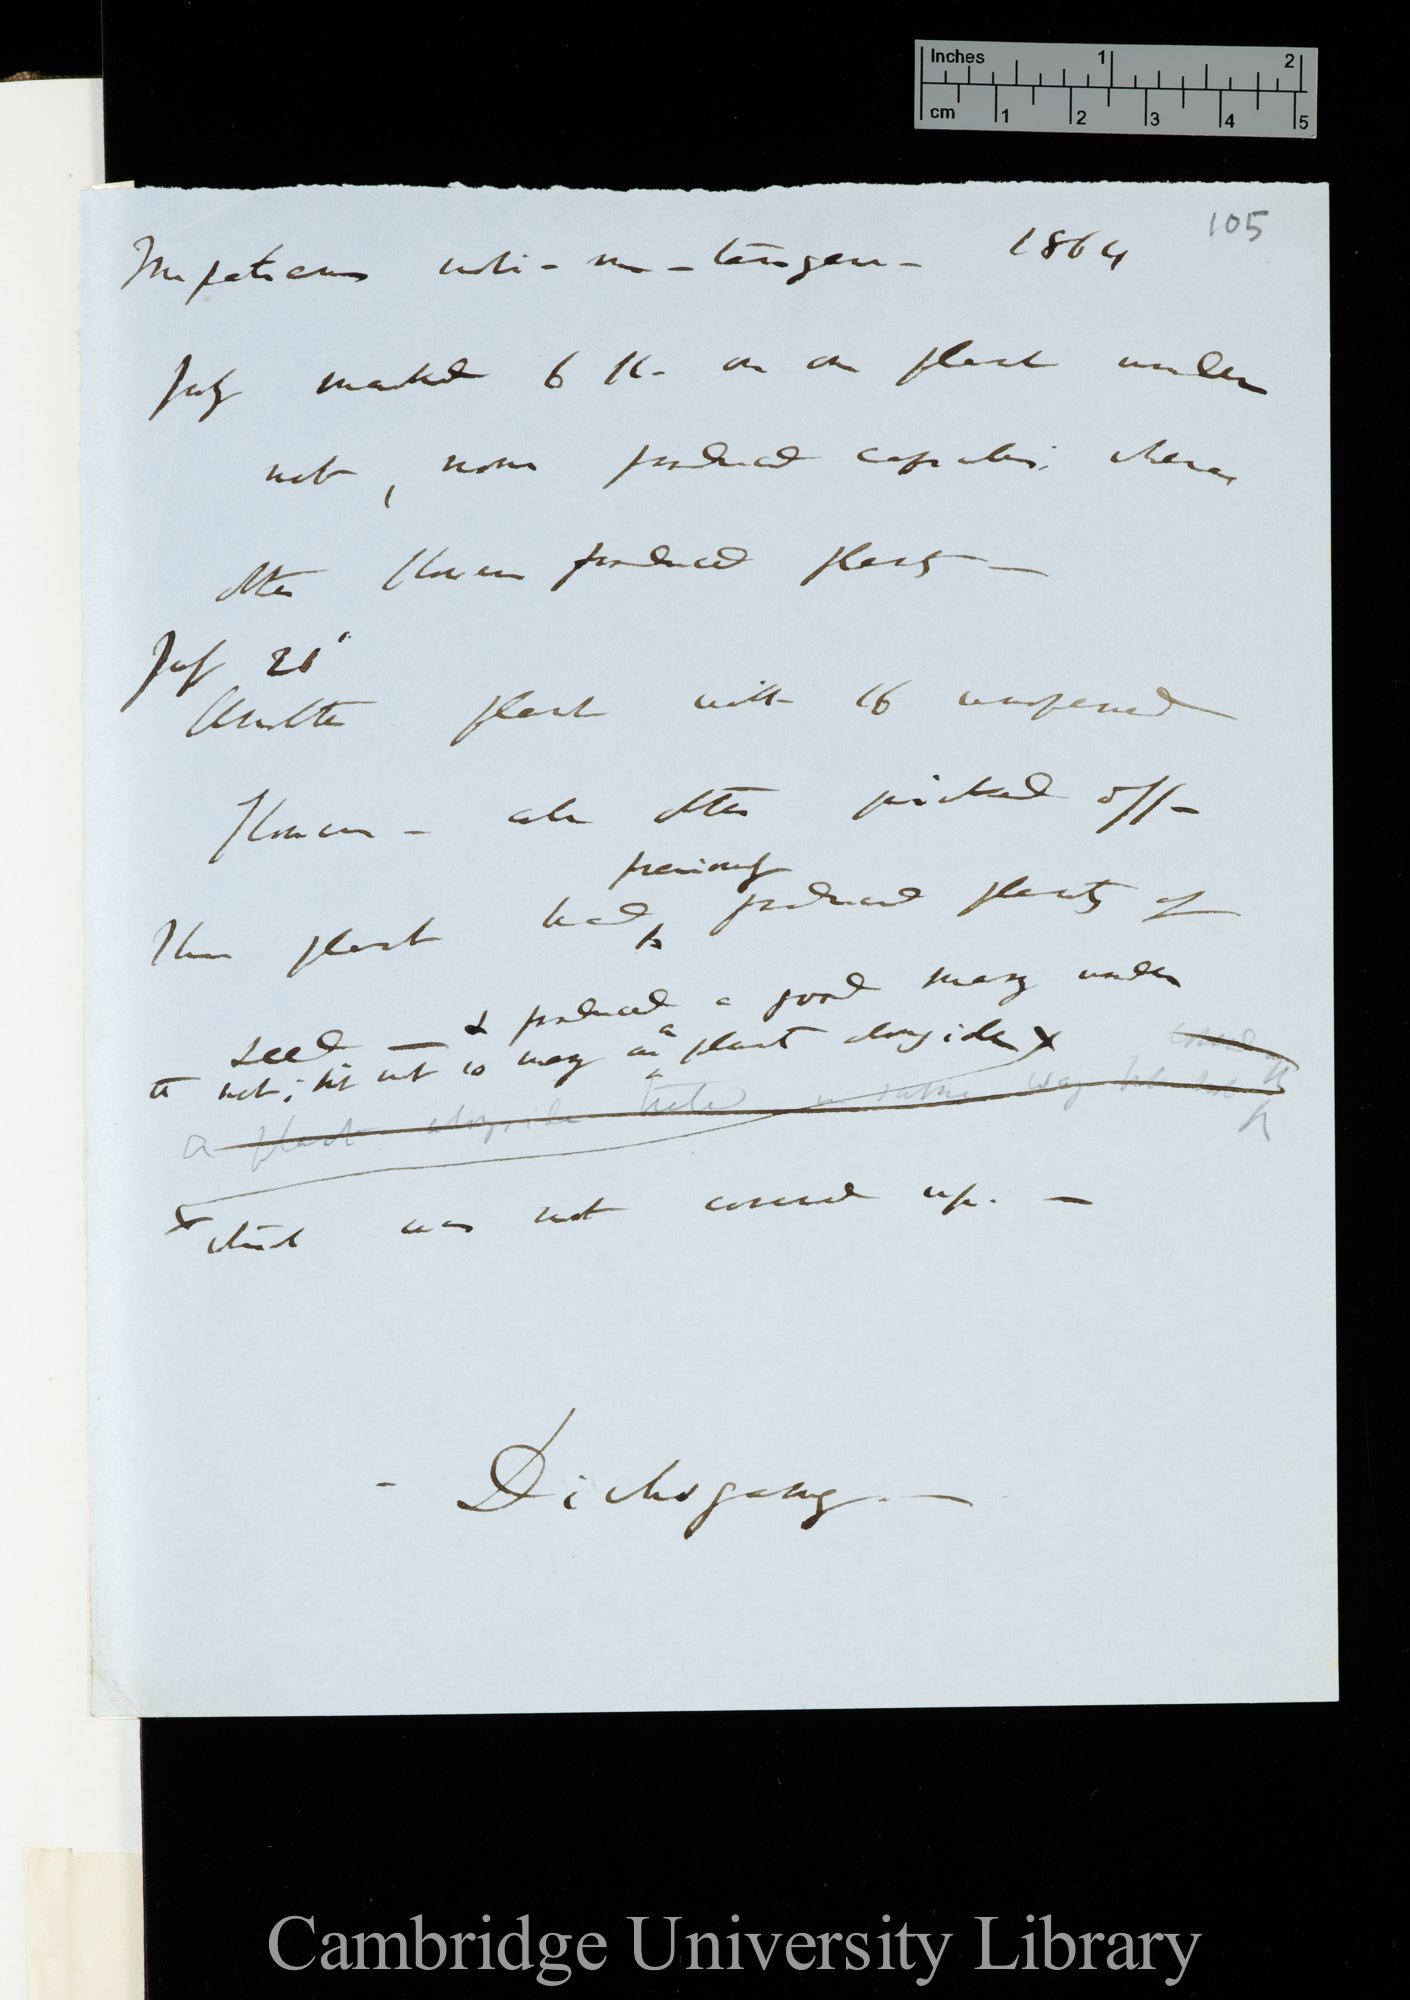 Inches 1 2
cm 1 2 3 4 5
105
Impatiens noli-me-tangere 1864
July marked 6 fl. on one plant under
net, none produced capsules; whereas
other flowers produced plenty —
July 21
Another plant with 16 unopened
flowers — all others picked off —
This plant had previously produced plenty of
seed — & produced a good many under
the net; but not so many as a plant alongside x
a plant alongside treated in same way but not covered up
x which was not covered up. —
- Dichogamy. —
Cambridge University Library